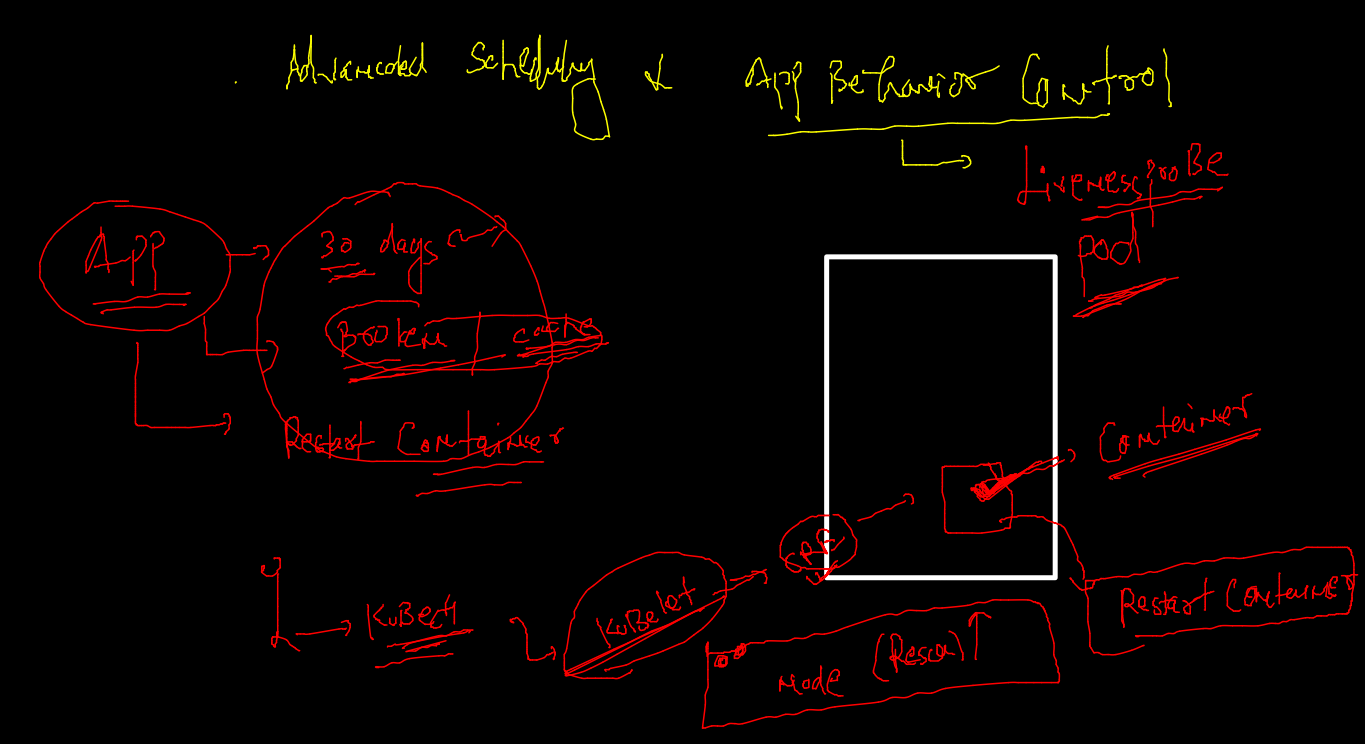 Advanced Scheduling & App Behavior Control
Liveness Probe
pod
App
30 days
Broken | cache
Restart Container
Container
KuBelet
Restart Container
Node (Resou)